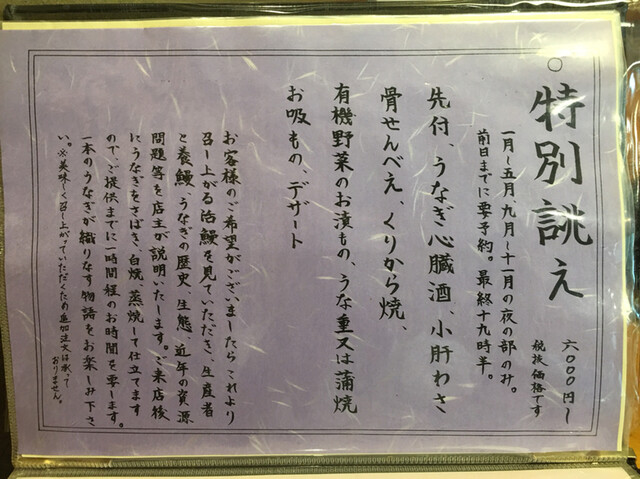 特別誂え
六〇〇〇円〜
税抜価格です
一月〜五月、九月〜十一月の夜の部のみ。
前日までに要予約。最終十九時半。
先付、うなぎ心臓酒、小肝わさ
骨せんべえ、くりから焼、
有機野菜のお漬もの、うな重又は蒲焼
お吸もの、デザート
お客様のご希望がございましたら これより
召し上がる活鰻を見ていただき、生産者
と養鰻、うなぎの歴史、生態、近年の資源
問題等を店主が説明いたします。ご来店後
にうなぎをさばき、白焼、蒸焼して仕立てます
ので、ご提供までに一時間程のお時間を要します。
一本のうなぎが織りなす物語をお楽しみ下さ
い。※美味しく召し上がっていただくため追加注文は承って
おりません。